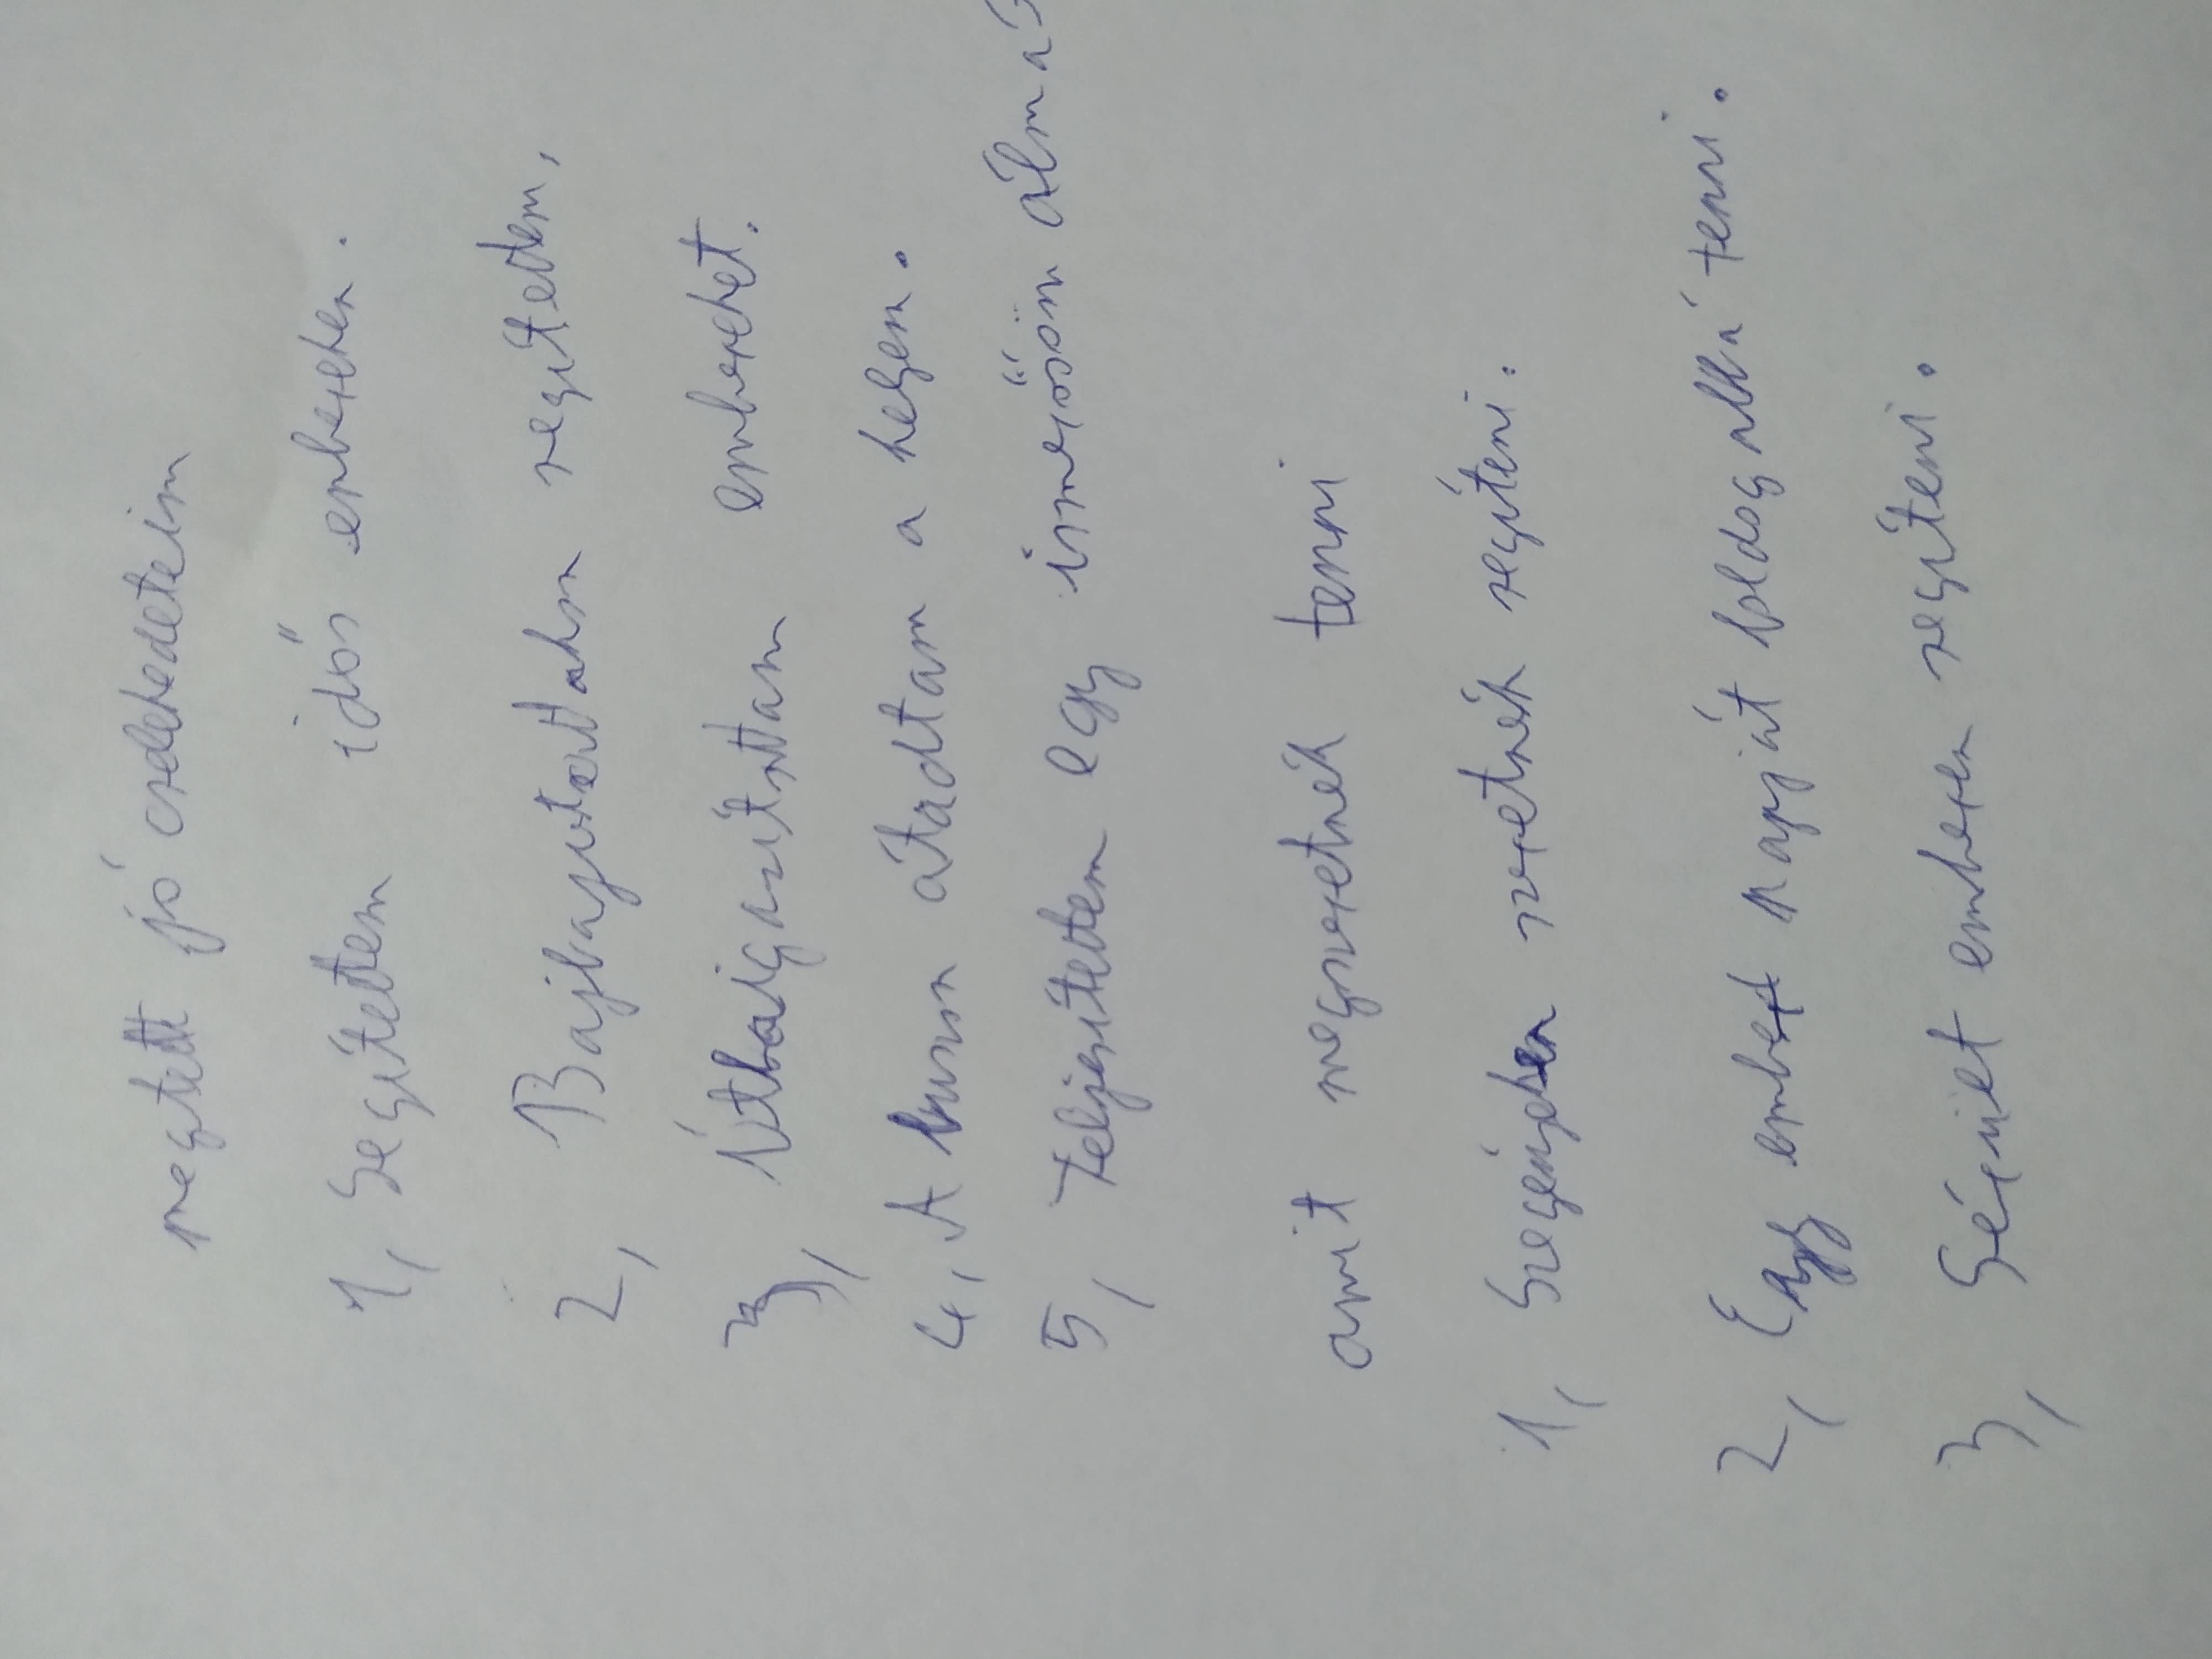 megtett jó cselekedeteim
1, Segítettem idős embereken.
2, Bajbajutottakon segítettem,
3, Útbaigazítottam embereket.
4, A buson átadtam a helyem.
5, Teljesítettem egy ismerősöm álmát
amit megszeretnék tenni
1, Szegényeken szeretnék segíteni.
2, Egy ember napját boldogabbá tenni.
3, Sérült emberen segíteni.